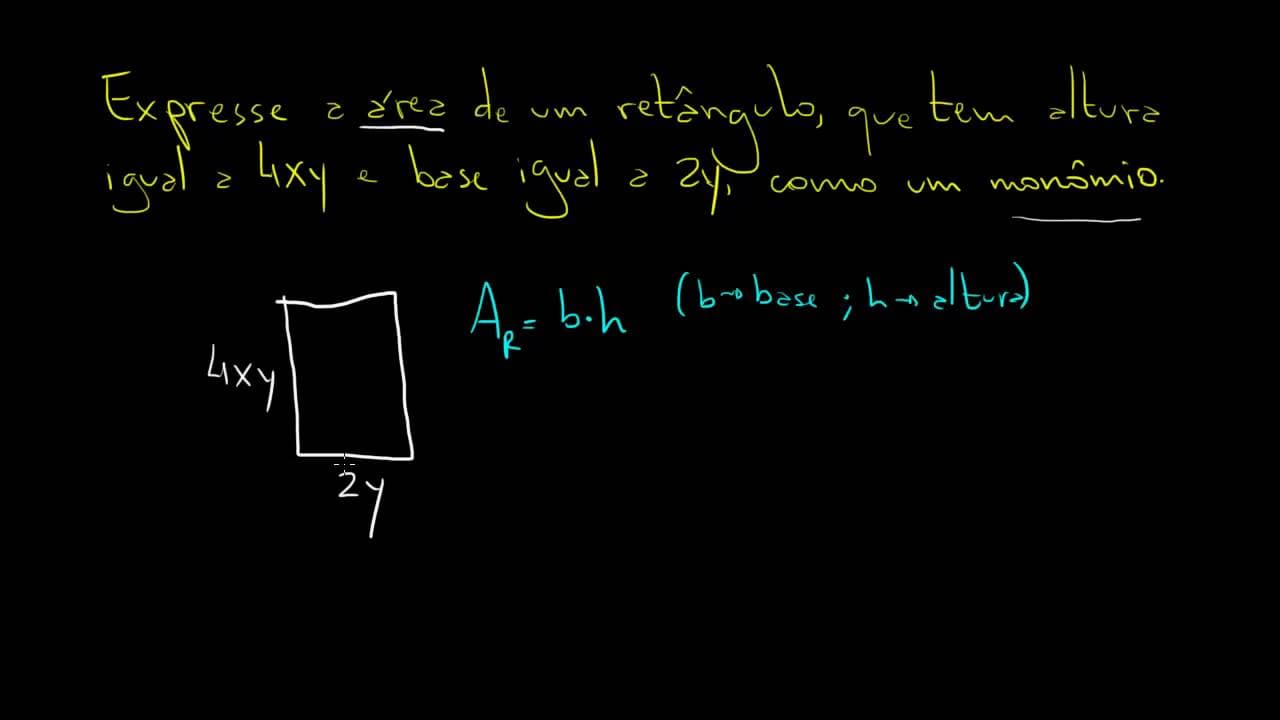 Expresse a área de um retângulo, que tem altura
igual a 4xy e base igual a 2y, como um monômio.
A_R = b·h (b→base ; h→altura)
4xy
2y